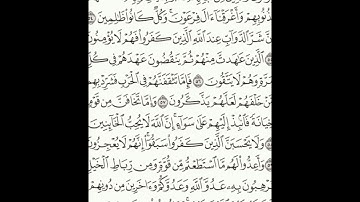 ذُنُوبِهِمْ وَأَغْرَقْنَا ءَالَ فِرْعَوْنَ وَكُلٌّ كَانُوا۟ ظَٰلِمِينَ
نَّ شَرَّ ٱلدَّوَآبِّ عِندَ ٱللَّهِ ٱلَّذِينَ كَفَرُوا۟ فَهُمْ لَا يُؤْمِنُونَ
ٱلَّذِينَ عَٰهَدتَّ مِنْهُمْ ثُمَّ يَنقُضُونَ عَهْدَهُمْ فِى كُلِّ
مَرَّةٍ وَهُمْ لَا يَتَّقُونَ ٥٦ فَإِمَّا تَثْقَفَنَّهُمْ فِى ٱلْحَرْبِ فَشَرِّدْ بِهِم
مَّنْ خَلْفَهُمْ لَعَلَّهُمْ يَذَّكَّرُونَ ٥٧ وَإِمَّا تَخَافَنَّ مِن قَوْمٍ
خِيَانَةً فَٱنۢبِذْ إِلَيْهِمْ عَلَىٰ سَوَآءٍ إِنَّ ٱللَّهَ لَا يُحِبُّ ٱلْخَآئِنِينَ
وَلَا يَحْسَبَنَّ ٱلَّذِينَ كَفَرُوا۟ سَبَقُوٓا۟ إِنَّهُمْ لَا يُعْجِزُونَ
وَأَعِدُّوا۟ لَهُم مَّا ٱسْتَطَعْتُم مِّن قُوَّةٍ وَمِن رِّبَاطِ ٱلْخَيْلِ
تُرْهِبُونَ بِهِۦ عَدُوَّ ٱللَّهِ وَعَدُوَّكُمْ وَءَاخَرِينَ مِن دُونِهِمْ